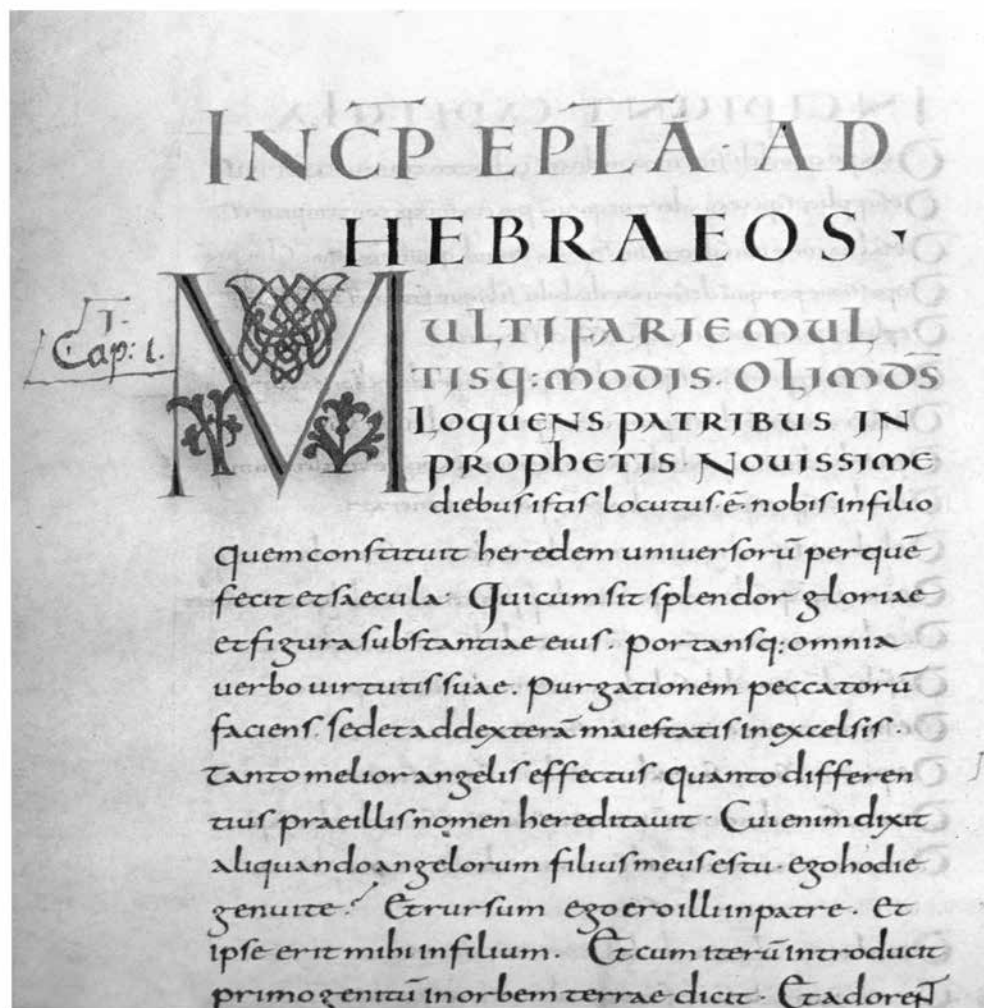 INCP EPLĀ· AD
HEBRAEOS·
I.
Cap: 1.
MULTIFARIE MUL
TISQ: MODIS· OLIM DS̄
LOQUENS PATRIBUS IN
PROPHETIS NOUISSIME
diebus istis locutus·ē· nobis in filio
quem constituit heredem uniuersorū per quē
fecit et saecula· Qui cum sit splendor gloriae
et figura substantiae eius· portansq: omnia
uerbo uirtutis suae· purgationem peccatorū
faciens· sedet ad dexterā maiestatis in excelsis·
tanto melior angelis effectus· quanto differen
tius prae illis nomen hereditauit· Cui enim dixit
aliquando angelorum filius meus es tu· ego hodie
genui te? Et rursum ego ero illi in patrē· Et
ipse erit mihi in filium· Et cum iterū introducit
primogenitū in orbem terrae dicit· Et adorent